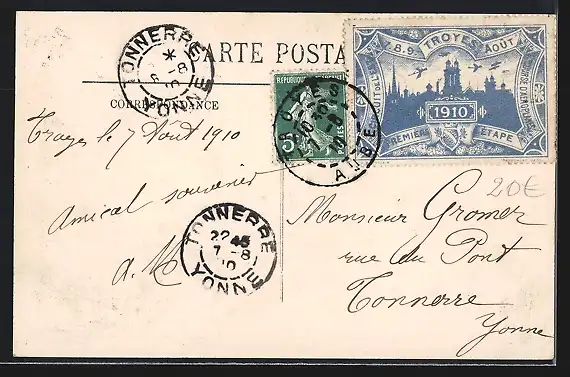 CARTE POSTA
CORRESPONDANCE
TONNERRE
* 8
YONNE
RÉPUBLIQUE
5
TROYES
10
7 - 8
10
AUBE
7.8.9 TROYES AOUT
CIRCUIT DE L'EST
1910
PREMIÈRE ÉTAPE
20€
Troyes le 7 Août 1910
Amical souvenir
TONNERRE
22 45
7 - 8
10
YONNE
Monsieur Gromer
rue du Pont
Tonnerre
Yonne